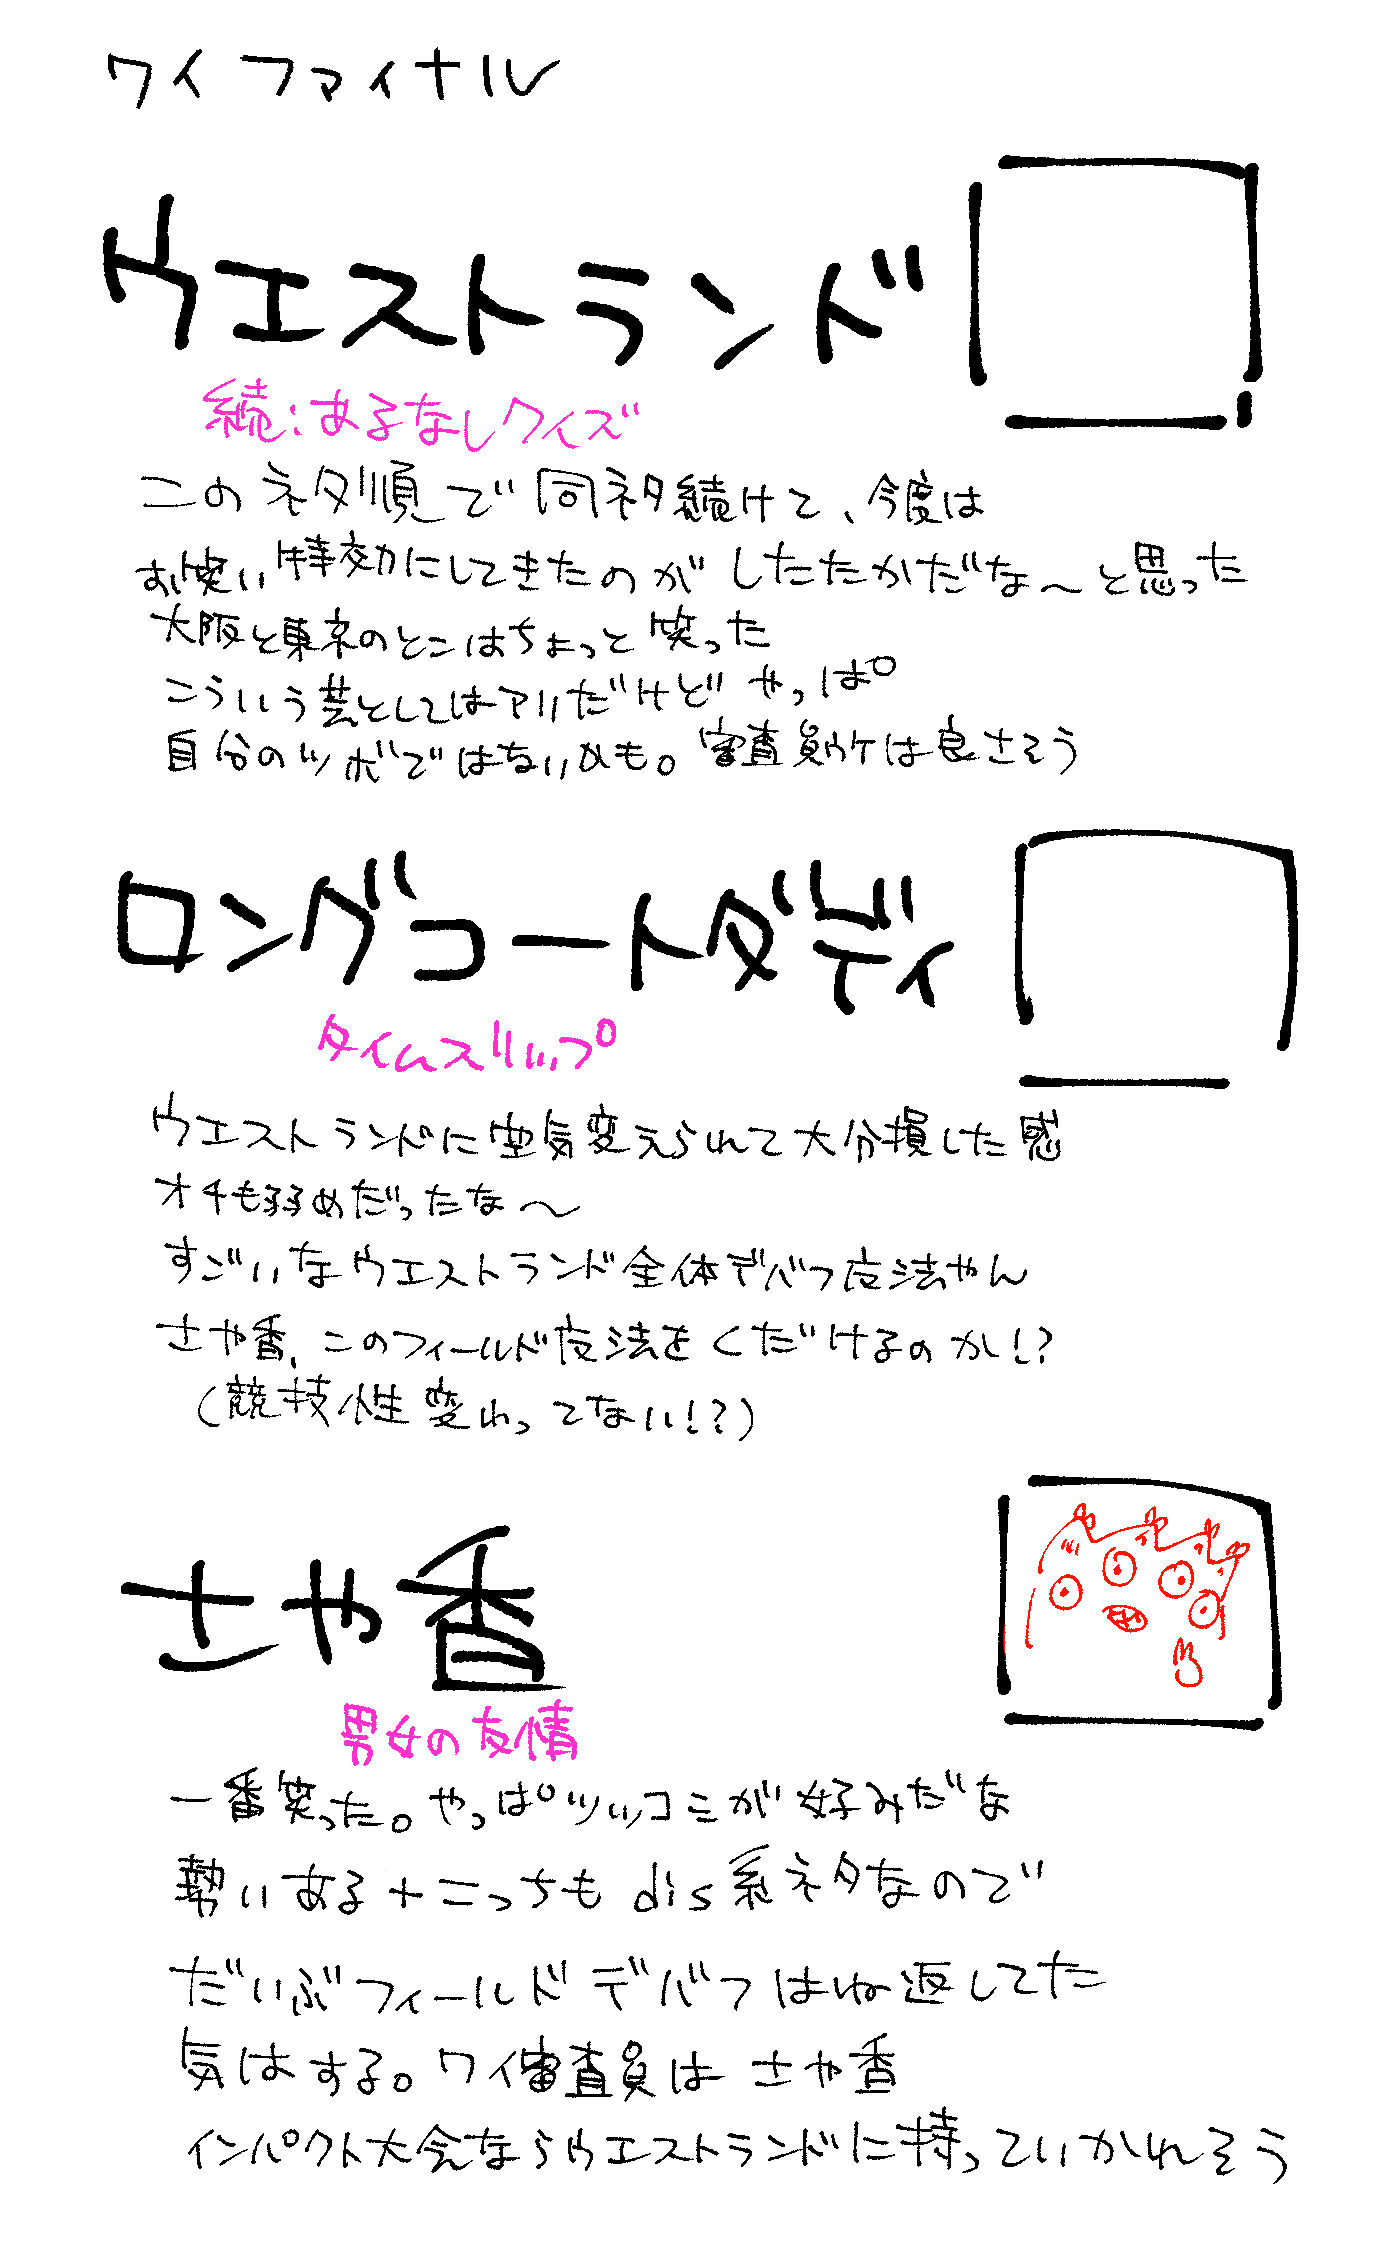 ワイファイナル
ウエストランド
続:あるなしクイズ
このネタ順で同ネタ続けて、今度は
お笑い特効にしてきたのがしたたかだな〜と思った
大阪と東京のとこはちょっと笑った
こういう芸としてはアリだけどやっぱ
自分のツボではないかも。審査員ウケは良さそう
ロングコートダディ
タイムスリップ
ウエストランドに空気変えられて大分損した感
オチも弱めだったな〜
すごいなウエストランド全体デバフ技法やん
さや香、このフィールド技法をくだけるのか!?
(競技性変わってない!?)
さや香
男女の友情
一番笑った。やっぱツッコミが好みだな
勢いある+こっちもdis系ネタなので
だいぶフィールドデバフはね返してた
気はする。ワイ審査員はさや香
インパクト大会ならウエストランドに持っていかれそう